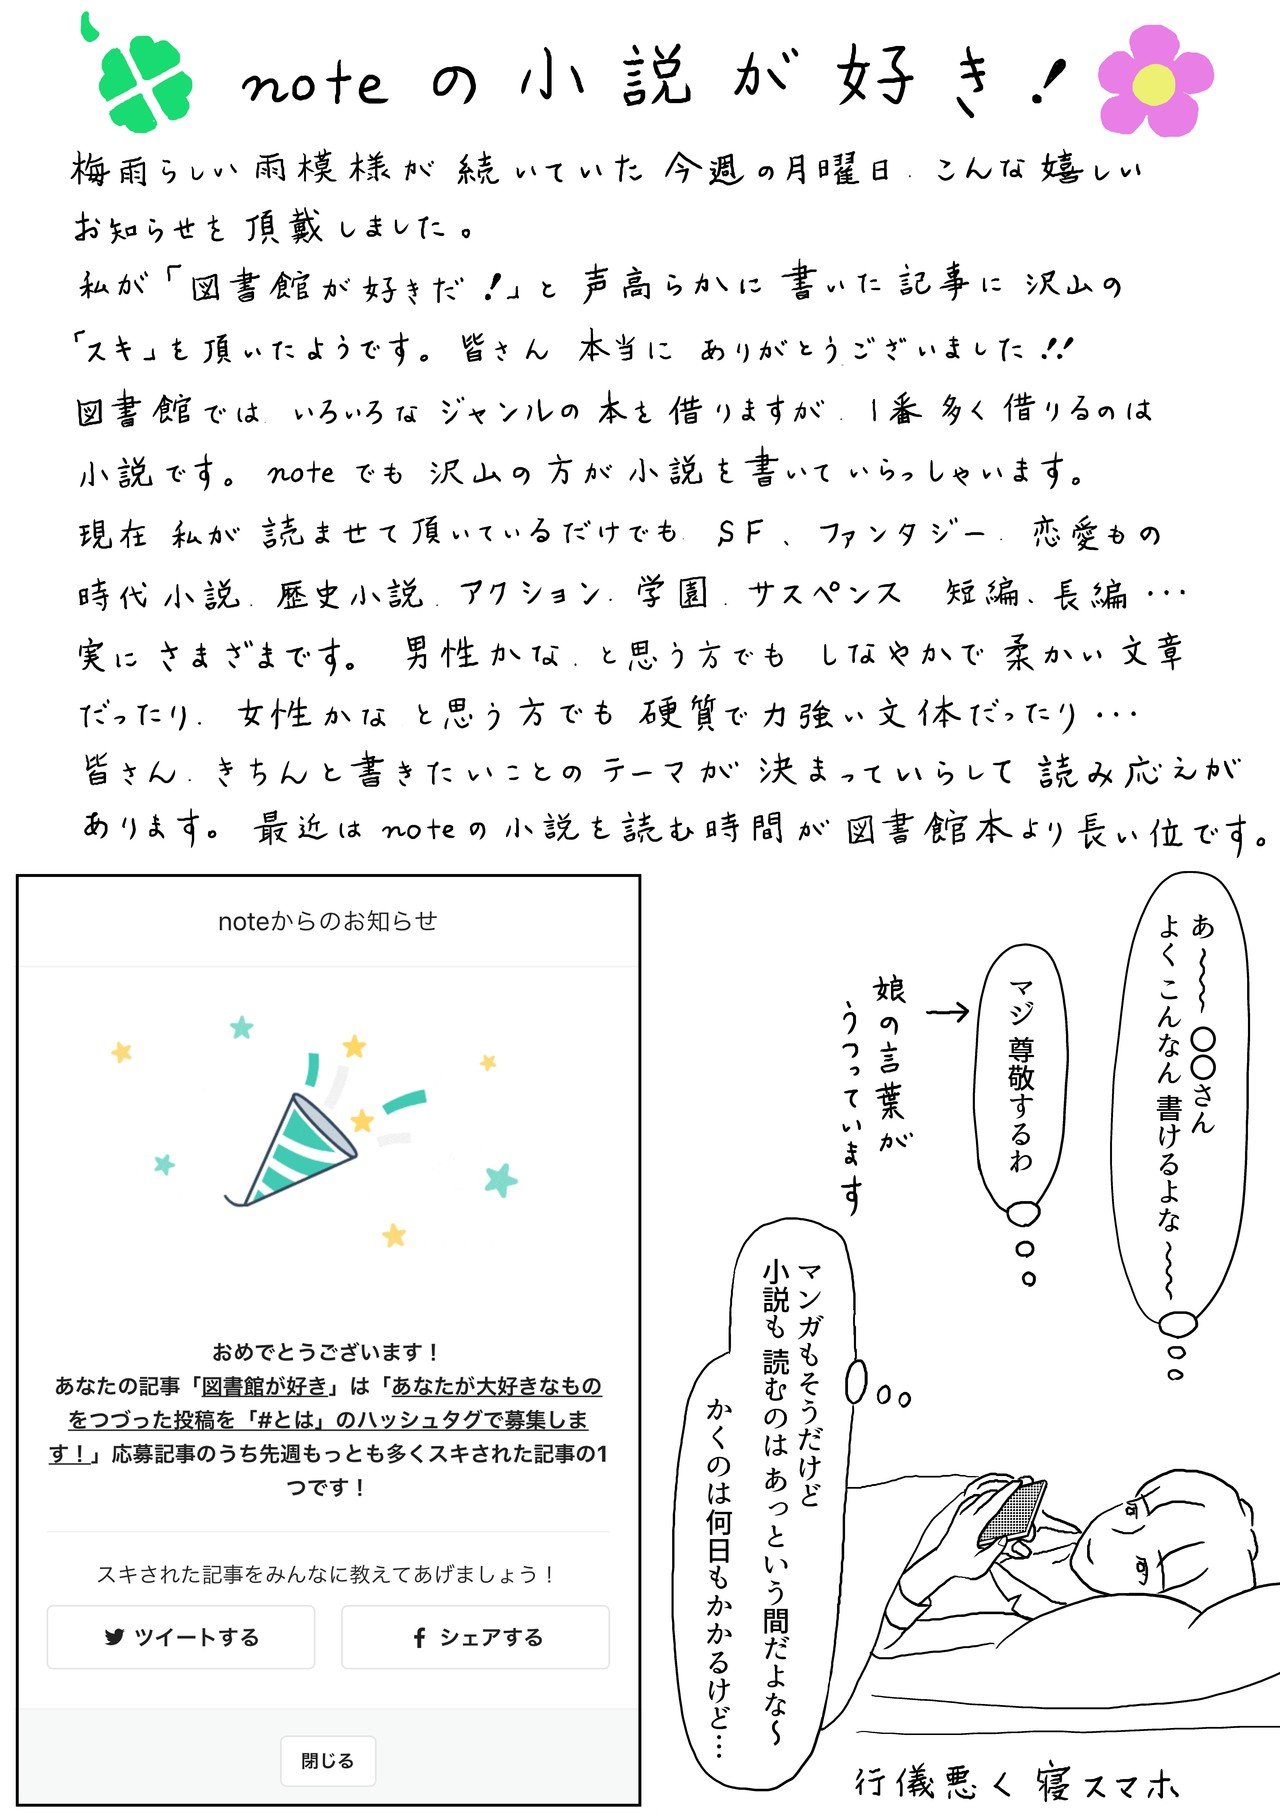 noteの小説が好き！
梅雨らしい雨模様が続いていた今週の月曜日、こんな嬉しい
お知らせを頂戴しました。
私が「図書館が好きだ！」と声高らかに書いた記事に沢山の
「スキ」を頂いたようです。皆さん 本当に ありがとうございました!!
図書館では、いろいろなジャンルの本を借りますが、1番多く借りるのは
小説です。noteでも沢山の方が小説を書いていらっしゃいます。
現在私が読ませて頂いているだけでも、SF、ファンタジー、恋愛もの
時代小説、歴史小説、アクション、学園、サスペンス 短編、長編…
実にさまざまです。 男性かな、と思う方でも しなやかで柔かい文章
だったり、女性かな、と思う方でも 硬質で力強い文体だったり…
皆さん、きちんと書きたいことのテーマが決まっていらして読み応えが
あります。最近はnoteの小説を読む時間が図書館本より長い位です。
noteからのお知らせ
おめでとうございます！
あなたの記事「図書館が好き」は「あなたが大好きなもの
をつづった投稿を「#とは」のハッシュタグで募集しま
す！」応募記事のうち先週もっとも多くスキされた記事の1
つです！
スキされた記事をみんなに教えてあげましょう！
ツイートする
シェアする
閉じる
あ〜〜〜〇〇さん
よくこんなん書けるよな〜〜〜
マジ尊敬するわ
娘の言葉が
うつっています
マンガもそうだけど
小説も読むのはあっという間だよな〜
かくのは何日もかかるけど…
行儀悪く寝スマホ